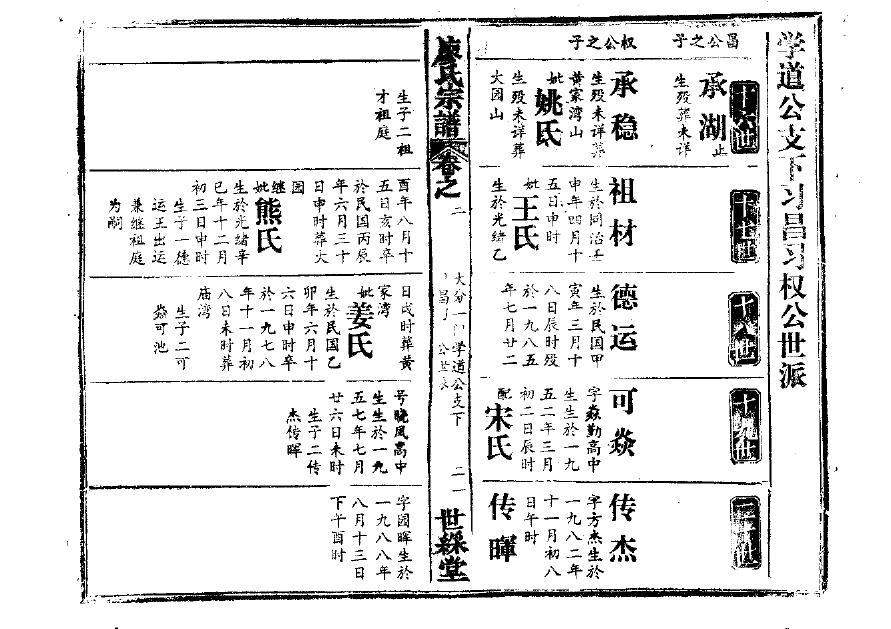 学道公支下习昌习权公世派
十六世
昌公之子
承湖
止
生殁葬未详
权公之子
承稳
生殁未详葬
黄家湾山
妣姚氏
生殁未详葬
大园山
生子二祖
才祖庭
十七世
祖材
生於同治壬
申年四月十
五日申时
妣王氏
生於光绪乙
酉年八月十
五日亥时卒
於民国丙辰
年六月三十
日申时葬大
园
继妣熊氏
生於光绪辛
巳年十二月
初三日申时
生子一德
运王出运
兼继祖庭
为嗣
十八世
德运
生於民国甲
寅年三月十
八日辰时殁
於一九八五
年七月廿二
日戌时葬黄
家湾
妣姜氏
生於民国乙
卯年六月十
六日申时卒
於一九七八
年十一月初
八日未时葬
庙湾
生子二可
焱可池
十九世
可焱
字焱勤高中
生生於一九
五二年三月
初二日辰时
配宋氏
号晓风高中
生生於一九
五七年七月
廿六日未时
生子二传
杰传晖
二十世
传杰
字方杰生於
一九八二年
十一月初八
日午时
传暉
字国晖生於
一九八八年
八月十三日
下午酉时
廖氏宗譜
卷之
二
学道公支下
二一
世綵堂